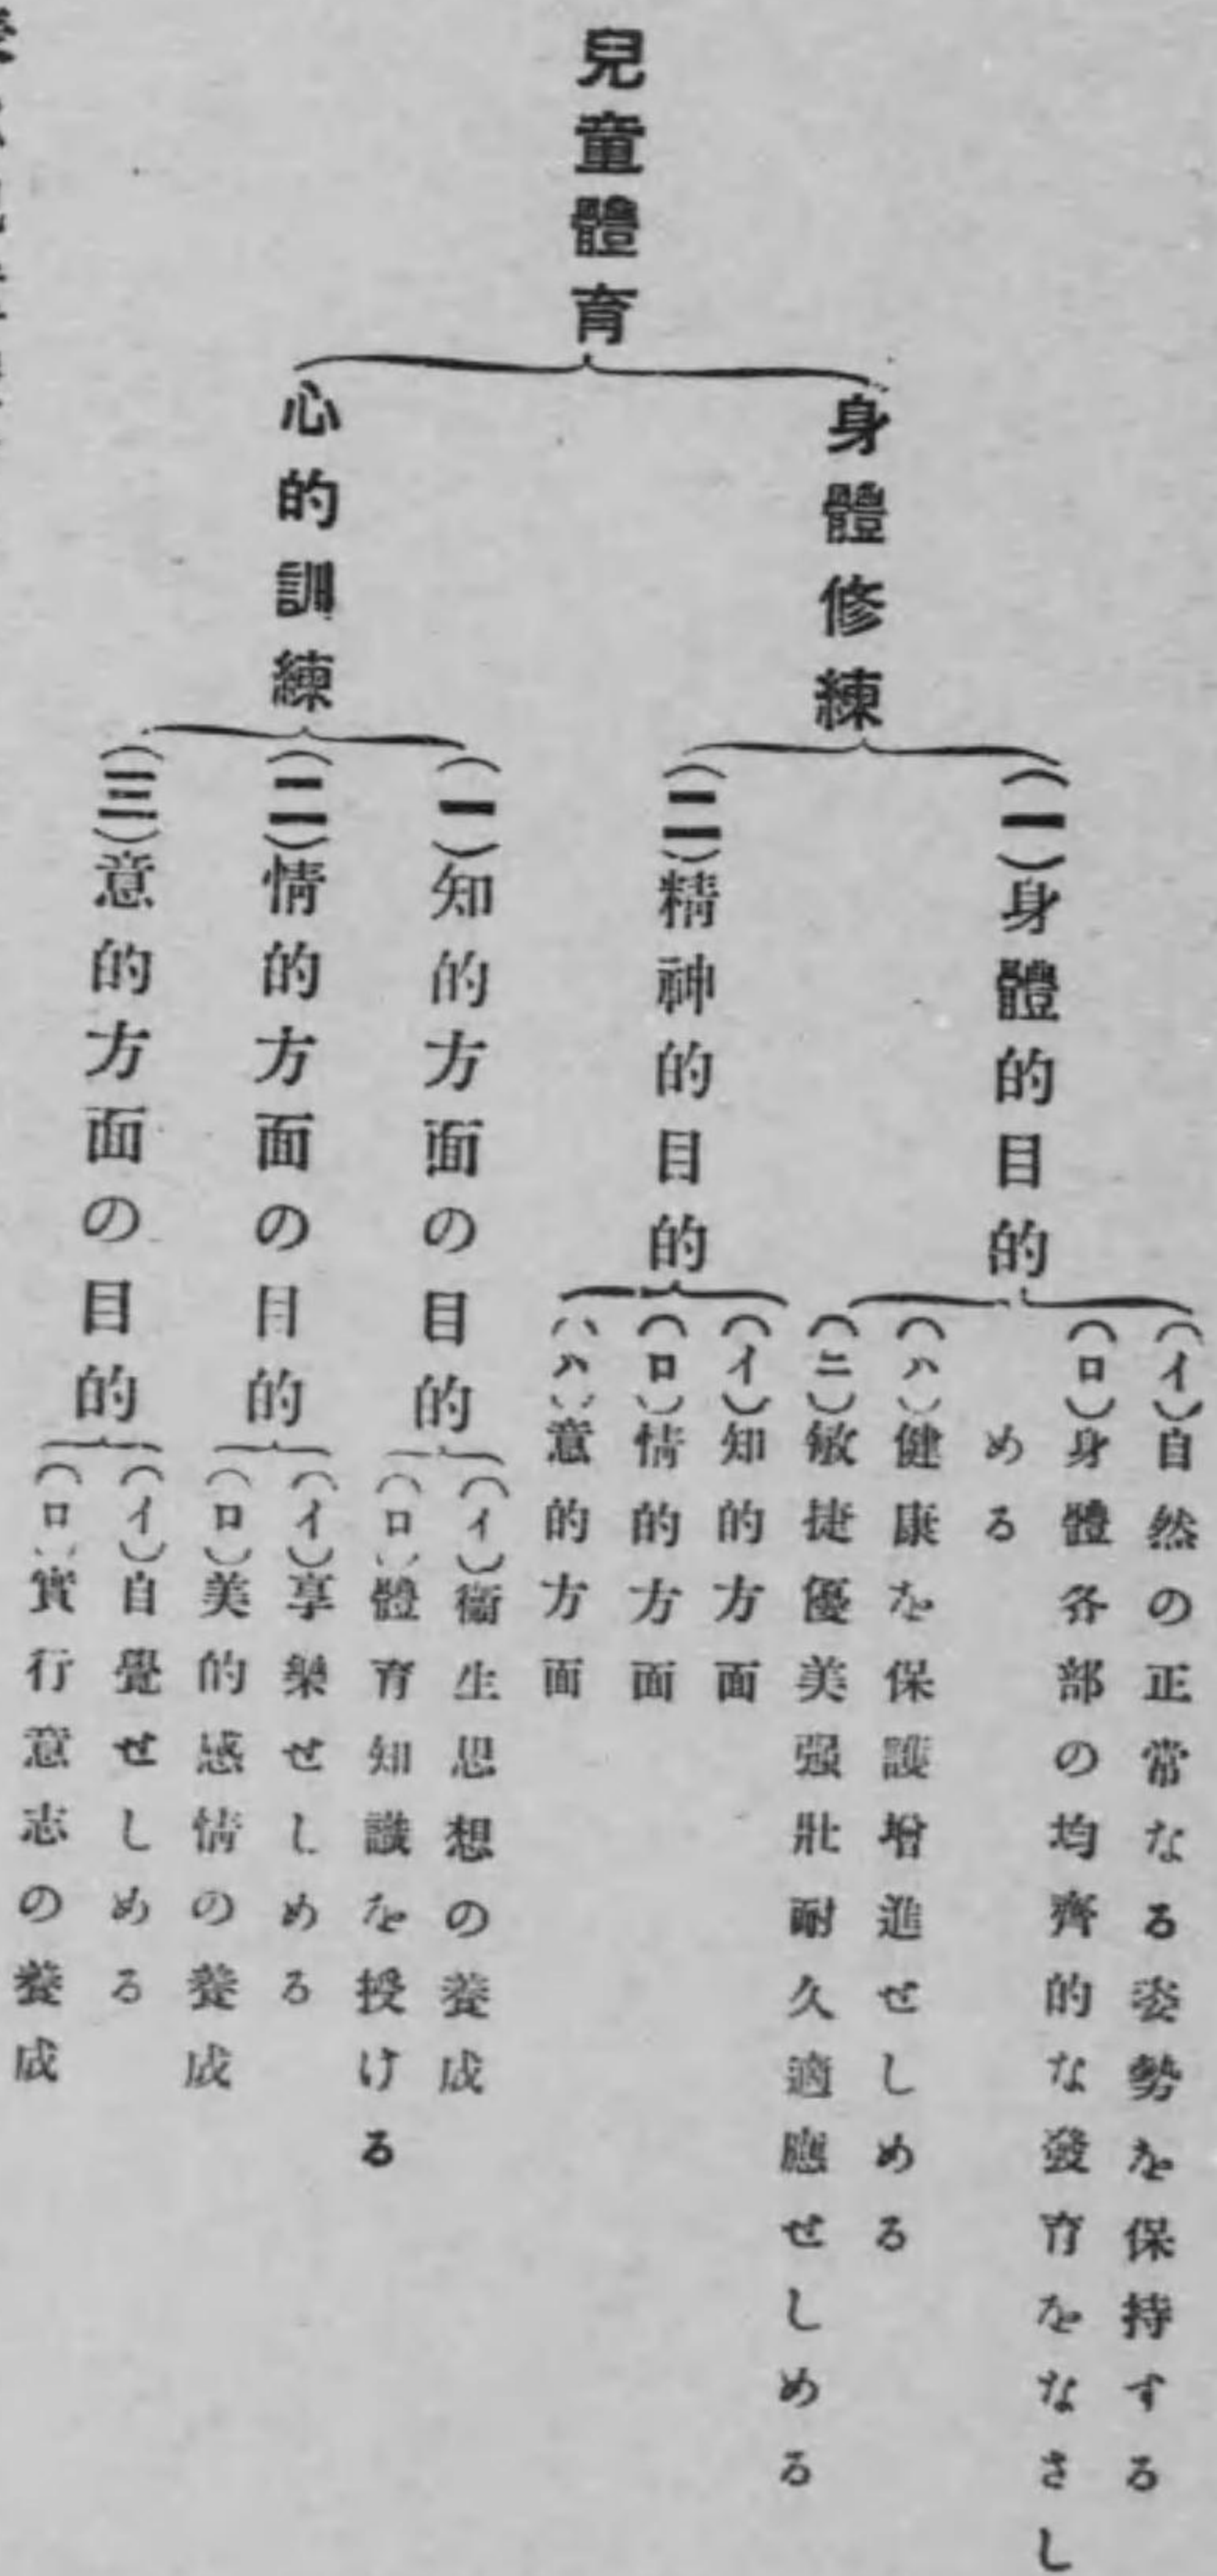 兒童體育
身體修練
(一)身體的目的
(イ)自然の正常なる姿勢を保持する
(ロ)身體各部の均齊的な發育をなさし
める
(ハ)健康を保護增進せしめる
(ニ)敏捷優美强壯耐久適應せしめる
(二)精神的目的
(イ)知的方面
(ロ)情的方面
(ハ)意的方面
心的訓練
(一)知的方面の目的
(イ)衞生思想の養成
(ロ)體育知識を授ける
(二)情的方面の目的
(イ)享樂せしめる
(ロ)美的感情の養成
(三)意的方面の目的
(イ)自覺せしめる
(ロ)實行意志の養成